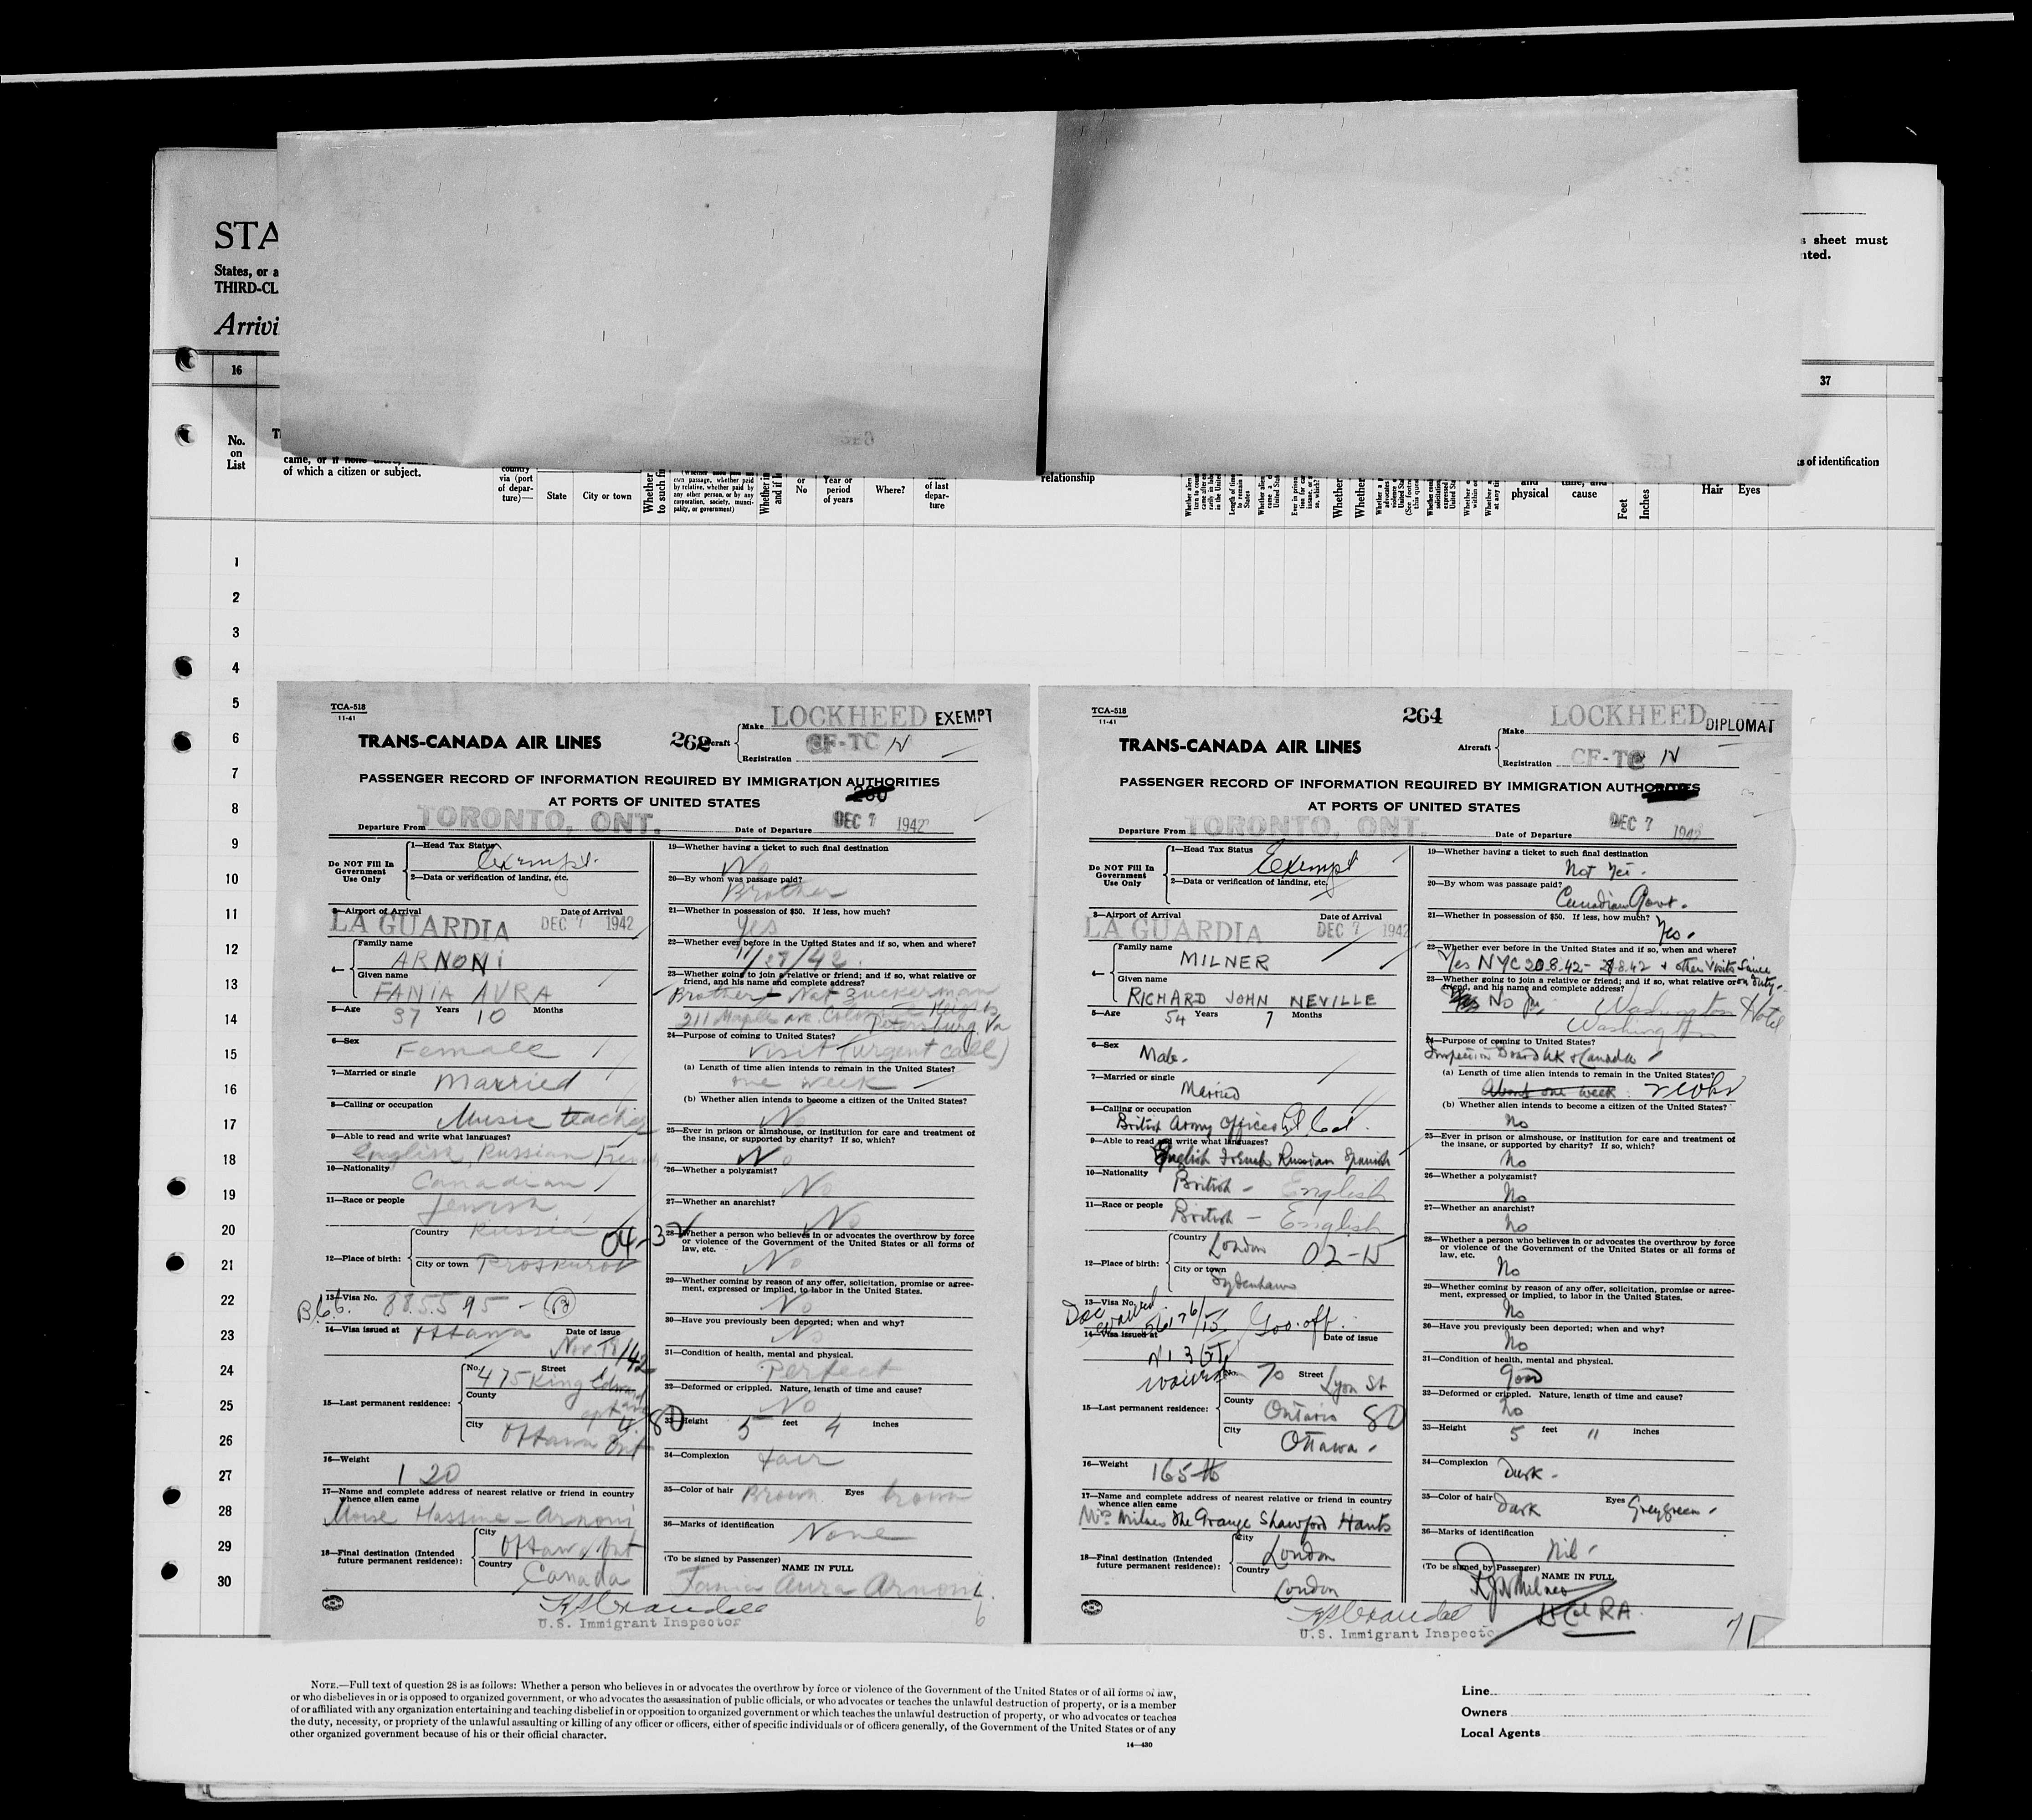 STA
States, or a
THIRD-CL
Arrivi
s sheet must
nted.
16
37
No.
on
List
came, or if none there,
of which a citizen or subject.
country
via (port
of depar-
ture)—
State
City or town
Whether
to such fi
own passage, whether paid
by relative, whether paid by
any other person, or by any
corporation, society, munici-
pality, or government)
or
No
Year or
period
of years
Where?
of last
depar-
ture
relationship
and
physical
time, and
cause
Feet
Inches
s of identification
Hair
Eyes
1
2
3
4
5
6
7
8
9
10
11
12
13
14
15
16
17
18
19
20
21
22
23
24
25
26
27
28
29
30
TCA-518
11-41
Make LOCKHEED EXEMPT
TRANS-CANADA AIR LINES
262 Aircraft
CF-TC N
Registration
PASSENGER RECORD OF INFORMATION REQUIRED BY IMMIGRATION AUTHORITIES
AT PORTS OF UNITED STATES
Departure From TORONTO, ONT. Date of Departure DEC 7 1942
Do NOT Fill In
Government
Use Only
1—Head Tax Status Exempt.
2—Data or verification of landing, etc.
3—Airport of Arrival Date of Arrival
LA GUARDIA DEC 7 1942
4—
Family name
ARNONI
Given name
FANIA AVRA
5—Age 37 Years 10 Months
6—Sex Female
7—Married or single Married
8—Calling or occupation
Music teacher
9—Able to read and write what languages?
English, Russian, French
10—Nationality
Canadian
11—Race or people
Jewish
12—Place of birth:
Country Russia
04-32
City or town Proskurov
13—Visa No. 885595 - B
B.66.
14—Visa issued at Ottawa Date of issue
Nov 18/42
15—Last permanent residence:
No. 475 Street King Edward
County
apt 4
City
Ottawa Ont
80
16—Weight
120
17—Name and complete address of nearest relative or friend in country
whence alien came
Moise Hassine-Arnoni
18—Final destination (Intended
future permanent residence):
City
Ottawa, Ont
Country
Canada
U.S. Immigrant Inspector
19—Whether having a ticket to such final destination
No
20—By whom was passage paid?
Brother
21—Whether in possession of $50. If less, how much?
Yes
22—Whether ever before in the United States and if so, when and where?
11/27/42.
23—Whether going to join a relative or friend; and if so, what relative or
friend, and his name and complete address?
Brother - Nat Zuckerman
211 Maple ave. Colonial Heights
Petersburg, Va
24—Purpose of coming to United States?
Visit (urgent call)
(a) Length of time alien intends to remain in the United States?
one week
(b) Whether alien intends to become a citizen of the United States?
No
25—Ever in prison or almshouse, or institution for care and treatment of
the insane, or supported by charity? If so, which?
No
26—Whether a polygamist?
No
27—Whether an anarchist?
No
28—Whether a person who believes in or advocates the overthrow by force
or violence of the Government of the United States or all forms of
law, etc.
No
29—Whether coming by reason of any offer, solicitation, promise or agree-
ment, expressed or implied, to labor in the United States.
No
30—Have you previously been deported; when and why?
No
31—Condition of health, mental and physical.
Perfect
32—Deformed or crippled. Nature, length of time and cause?
No
33—Height 5 feet 4 inches
34—Complexion fair
35—Color of hair Brown Eyes brown
36—Marks of identification
None
(To be signed by Passenger)
NAME IN FULL
Fania Avra Arnoni
6
TCA-518
11-41
264
Make LOCKHEED DIPLOMAT
TRANS-CANADA AIR LINES
Aircraft
Registration CF-TC N
PASSENGER RECORD OF INFORMATION REQUIRED BY IMMIGRATION AUTHORITIES
AT PORTS OF UNITED STATES
Departure From TORONTO, ONT. Date of Departure DEC 7 1942
Do NOT Fill In
Government
Use Only
1—Head Tax Status Exempt
2—Data or verification of landing, etc.
3—Airport of Arrival Date of Arrival
LA GUARDIA DEC 7 1942
4—
Family name
MILNER
Given name
RICHARD JOHN NEVILLE
5—Age 54 Years 7 Months
6—Sex
Male.
7—Married or single
Married
8—Calling or occupation
British Army Officer Lt. Col.
9—Able to read and write what languages?
English French Russian Spanish
10—Nationality
British - English
11—Race or people
British - English
12—Place of birth:
Country
London 02-15
City or town
Sydenham
13—Visa No.
Doc waived
Gov. off.
14—Visa issued at Date of issue
waived
15—Last permanent residence:
No. 70 Street Lyon St
County
Ontario 80
City
Ottawa.
16—Weight 165 lb
17—Name and complete address of nearest relative or friend in country
whence alien came
Mrs Milner The Grange Shawford Hants
18—Final destination (Intended
future permanent residence):
City
London
Country
London
U.S. Immigrant Inspector
19—Whether having a ticket to such final destination
Not Yet.
20—By whom was passage paid?
Canadian Govt.
21—Whether in possession of $50. If less, how much?
Yes.
22—Whether ever before in the United States and if so, when and where?
Yes NYC 20.8.42 - 21.8.42 + other visits since
on duty.
23—Whether going to join a relative or friend; and if so, what relative or
friend, and his name and complete address?
No Washington Hotel
Washington
24—Purpose of coming to United States?
Inspection Board UK & Canada
(a) Length of time alien intends to remain in the United States?
About one week.
(b) Whether alien intends to become a citizen of the United States?
No
25—Ever in prison or almshouse, or institution for care and treatment of
the insane, or supported by charity? If so, which?
No
26—Whether a polygamist?
No
27—Whether an anarchist?
No
28—Whether a person who believes in or advocates the overthrow by force
or violence of the Government of the United States or all forms of
law, etc.
No
29—Whether coming by reason of any offer, solicitation, promise or agree-
ment, expressed or implied, to labor in the United States.
No
30—Have you previously been deported; when and why?
No
31—Condition of health, mental and physical.
Good
32—Deformed or crippled. Nature, length of time and cause?
No
33—Height 5 feet 11 inches
34—Complexion
Dark -
35—Color of hair Dark Eyes Greygreen
36—Marks of identification
Nil
(To be signed by Passenger)
NAME IN FULL
RJN Milner
Lt Col RA.
NOTE.—Full text of question 28 is as follows: Whether a person who believes in or advocates the overthrow by force or violence of the Government of the United States or of all forms of law,
or who disbelieves in or is opposed to organized government, or who advocates the assassination of public officials, or who advocates or teaches the unlawful destruction of property, or is a member
of or affiliated with any organization entertaining and teaching disbelief in or opposition to organized government or which teaches the unlawful destruction of property, or who advocates or teaches
the duty, necessity, or propriety of the unlawful assaulting or killing of any officer or officers, either of specific individuals or of officers generally, of the Government of the United States or of any
other organized government because of his or their official character.
14—430
Line
Owners
Local Agents